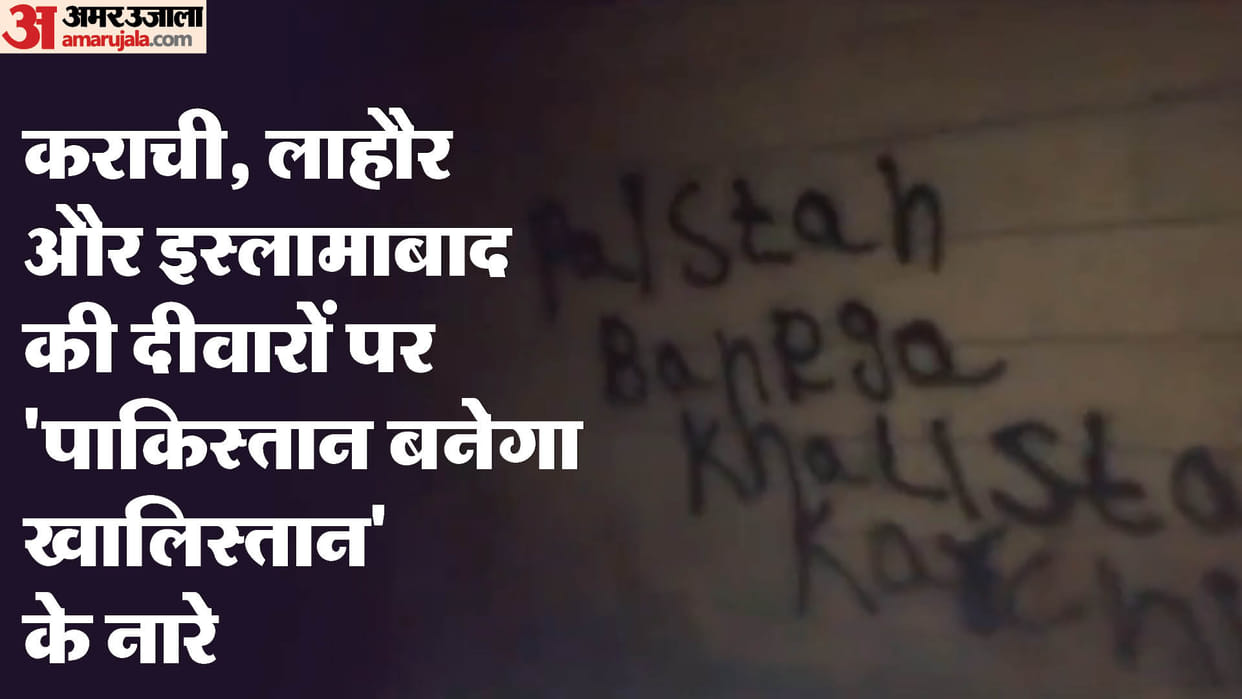 अ अमर उजाला
amarujala.com
कराची, लाहौर
और इस्लामाबाद
की दीवारों पर
'पाकिस्तान बनेगा
खालिस्तान'
के नारे
PalStan
Banega
KhaliSta
Karchi